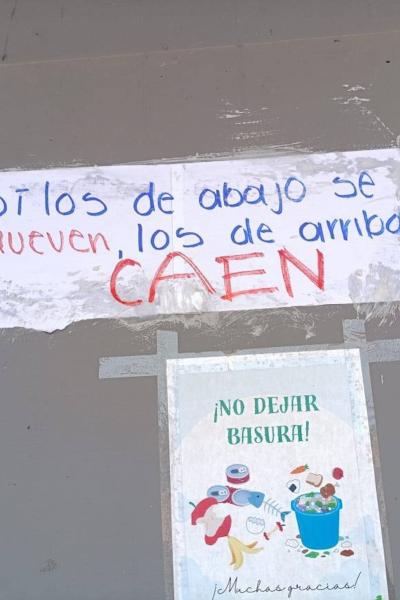 Si los de abajo se
mueven, los de arriba
CAEN
¡NO DEJAR
BASURA!
¡Muchas gracias!